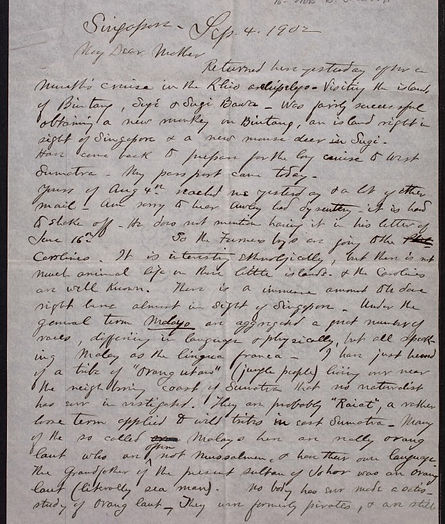 Singapore - Sep. 4. 1902
My Dear Mother
Returned here yesterday after a
month's cruise in the Rhio archipelago - Visiting the islands
of Bintang, Sugi & Sugi Bawa - Was fairly successful
obtaining a new monkey on Bintang, an island right in
sight of Singapore & a new mouse deer in Sugi.
Have come back to prepare for the long cruise to West
Sumatra - My passport came today.
Yours of Aug 4th reached me yesterday & a lot of other
mail - Am sorry to hear had dysentery - it is hard
to shake off - He does not mention having it in his letter of
June 16th. So the Furness boys are going to the
Carolines. It is interesting ethnologically, but there is not
much animal life on those little islands & the Carolines
are well known. There is a immense amount to be done
right here almost in sight of Singapore - Under the
general term Malayo are aggregated a great number of
races, differing in language & physically, but all speak-
ing Malay as the lingua franca - I have just heard
of a tribe of "Orang utans" (jungle people) living over near
the neighboring coast of Sumatra that no naturalist
has ever investigated. They are probably "Raiat", a rather
loose term applied to wild tribes in east Sumatra - Many
of the so called Malays here are really orang
laut who are often not Mussulmen, & have their own language
The Grandfather of the present sultan of Johor was an orang
laut (literally sea man). No body has ever made a satis-
study of Orang laut - They were formerly pirates, & are still